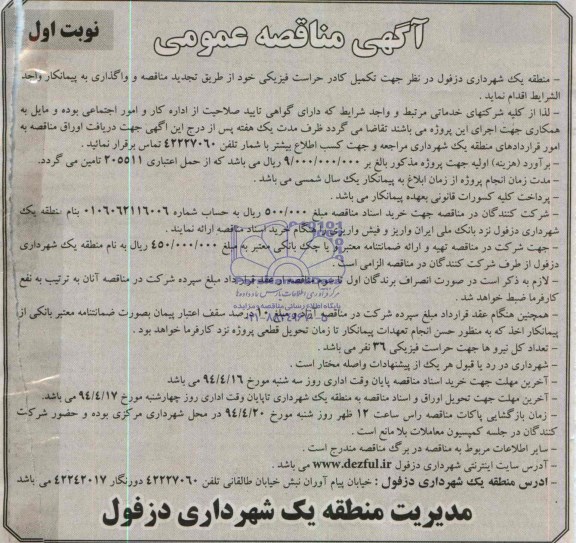 آگهی مناقصه عمومی
نوبت اول
– منطقه یک شهرداری دزفول در نظر جهت تکمیل کادر حراست فیزیکی خود از طریق تجدید مناقصه و واگذاری به پیمانکار واجد
الشرایط اقدام نماید .
– لذا از کلیه شرکتهای خدماتی مرتبط و واجد شرایط که دارای گواهی تایید صلاحیت از اداره کار و امور اجتماعی بوده و مایل به
همکاری جهت اجرای این پروژه می باشند تقاضا می گردد ظرف مدت یک هفته پس از درج این آگهی جهت دریافت اوراق مناقصه به
امور قراردادهای منطقه یک شهرداری مراجعه و جهت کسب اطلاع بیشتر با شمار تلفن ۴۲۲۲۷۰۶۰ تماس برقرار نمائید .
– برآورد (هزینه) اولیه جهت پروژه مذکور بالغ بر ۹/۰۰۰/۰۰۰/۰۰۰ ریال می باشد که از حمل اعتباری ۲۰۵۵۱۱ تامین می گردد.
– مدت زمان انجام پروژه از زمان ابلاغ به پیمانکار یک سال شمسی می باشد .
– پرداخت کلیه کسورات قانونی بعهده پیمانکار می باشد .
– شرکت کنندگان در مناقصه جهت خرید اسناد مناقصه مبلغ ۵۰۰/۰۰۰ ریال به حساب شماره ۰۱۰۶۰۶۲۱۱۶۰۰۶ بنام منطقه یک
شهرداری دزفول نزد بانک ملی ایران واریز و فیش واریزی را هنگام خرید اسناد مناقصه ارائه نمایند .
– جهت شرکت در مناقصه تهیه و ارائه ضمانتنامه معتبر و یا چک بانکی معتبر به مبلغ ۴۵۰/۰۰۰/۰۰۰ ریال به نام منطقه یک شهرداری
دزفول از طرف شرکت کنندگان در مناقصه الزامی است .
– لازم به ذکر است در صورت انصراف برندگان اول تا سوم مناقصه از عقد قرارداد مبلغ سپرده شرکت در مناقصه آنان به ترتیب به نفع
کارفرما ضبط خواهد شد .
– همچنین هنگام عقد قرارداد مبلغ سپرده شرکت در مناقصه آزاد و مبلغ ۱۰ درصد سقف اعتبار پیمان بصورت ضمانتنامه معتبر بانکی از
پیمانکار اخذ که به منظور حسن انجام تعهدات پیمانکار تا زمان تحویل قطعی پروژه نزد کارفرما خواهد بود .
– تعداد کل نیرو ها جهت حراست فیزیکی ۳۶ نفر می باشد .
– شهرداری در رد یا قبول هر یک از پیشنهادات واصله مختار است .
– آخرین مهلت جهت خرید اسناد مناقصه پایان وقت اداری روز سه شنبه مورخ ۹۴/۴/۱۶ می باشد
– آخرین مهلت جهت تحویل اوراق و اسناد مناقصه به منطقه یک شهرداری تاپایان وقت اداری روز چهارشنبه مورخ ۹۴/۴/۱۷ می باشد.
– زمان بازگشایی پاکات مناقصه راس ساعت ۱۲ ظهر روز شنبه مورخ ۹۴/۴/۲۰ در محل شهرداری مرکزی بوده و حضور شرکت
کنندگان در جلسه کمیسیون معاملات بلا مانع است .
– سایر اطلاعات مربوط به مناقصه در برگ مناقصه مندرج است .
– آدرس سایت اینترنتی شهرداری دزفول www.dezful.ir می باشد .
– ادرس منطقه یک شهرداری دزفول : خیابان پیام آوران نبش خیابان طالقانی تلفن ۴۲۲۲۷۰۶۰ دورنگار ۴۲۲۴۲۰۱۷ می باشد
مدیریت منطقه یک شهرداری دزفول